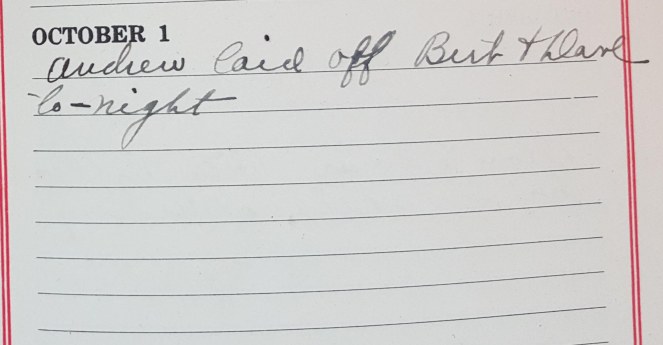 OCTOBER 1
Andrew laid off Bert + Dave
to-night